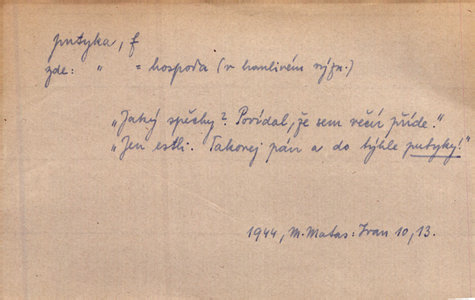 putyka, f
zde: " = hospoda (v hanlivém význ.)
"Jaký spěchy? Povídal, že sem večír příde."
"Jen estli. Takovej pán a do týhle putyky!"
1944, M. Matas: Ivan 10, 13.